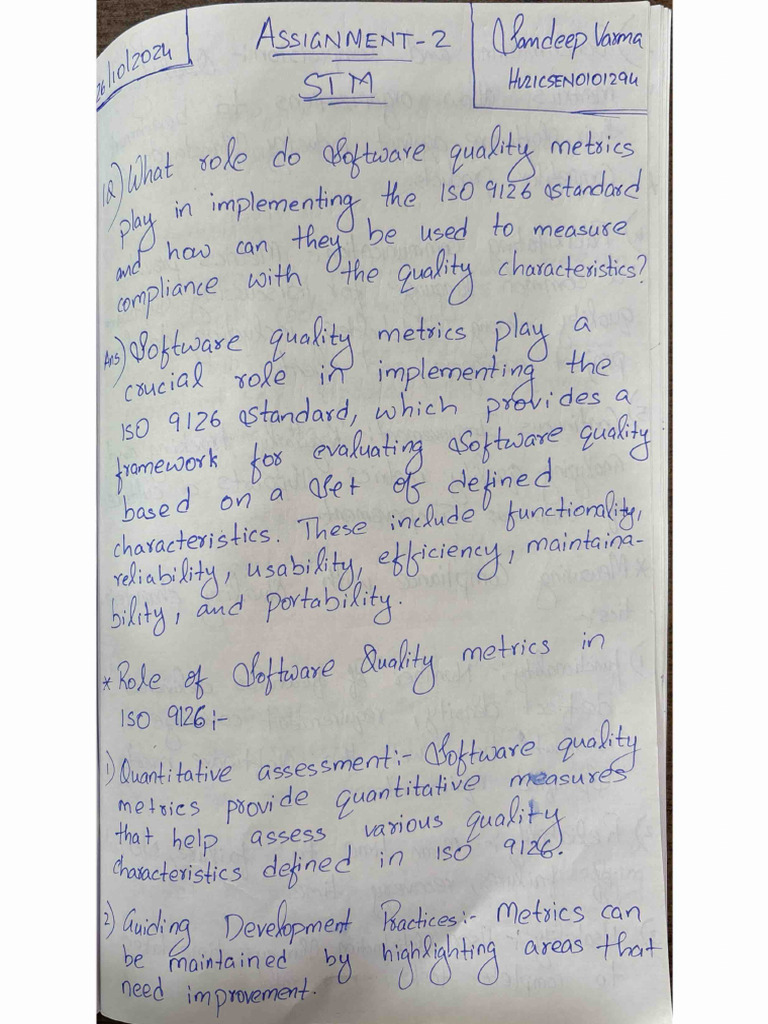 26/10/2024
ASSIGNMENT-2
STM
Sandeep Varma
HU21CSEN0101294
1Q) What role do Software quality metrics
play in implementing the ISO 9126 standard
and how can they be used to measure
compliance with the quality characteristics?
Ans) Software quality metrics play a
crucial role in implementing the
ISO 9126 standard, which provides a
framework for evaluating Software quality
based on a set of defined
characteristics. These include functionality,
reliability, usability, efficiency, maintaina-
bility, and portability.
* Role of Software Quality metrics in
ISO 9126:-
1) Quantitative assessment:- Software quality
metrics provide quantitative measures
that help assess various quality
characteristics defined in ISO 9126.
2) Guiding Development Practices:- Metrics can
be maintained by highlighting areas that
need improvement.